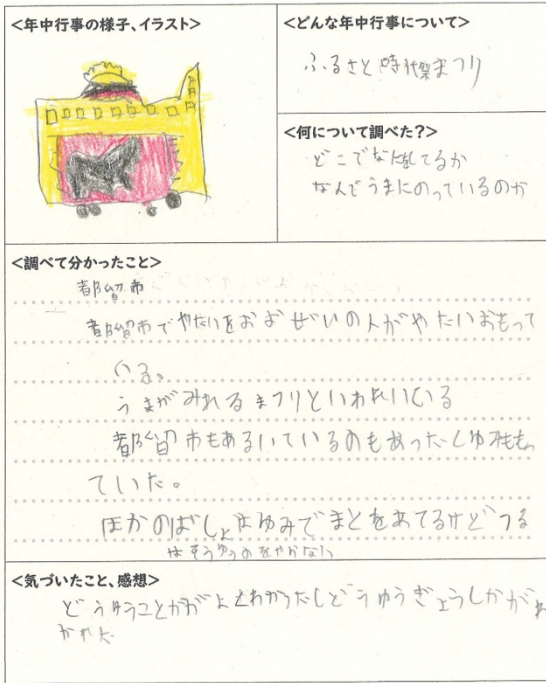 <年中行事の様子、イラスト>
<どんな年中行事について>
ふるさと時代祭まつり
<何について調べた?>
どこでなにしてるか
なんでうまにのっているのか
<調べて分かったこと>
都留市
都留市でやたいをおおぜいの人がやたいおもって
いる。
うまがみれるまつりといわれいている
都留市もあるいているのもあったしゆみもも
ていた。
ほかのばしょはゆみでまとをあてるけどつる
はそうゆうのをやらない
<気づいたこと、感想>
どうゆうことかがよくわかったしどうゆうぎょうじかがわ
かった